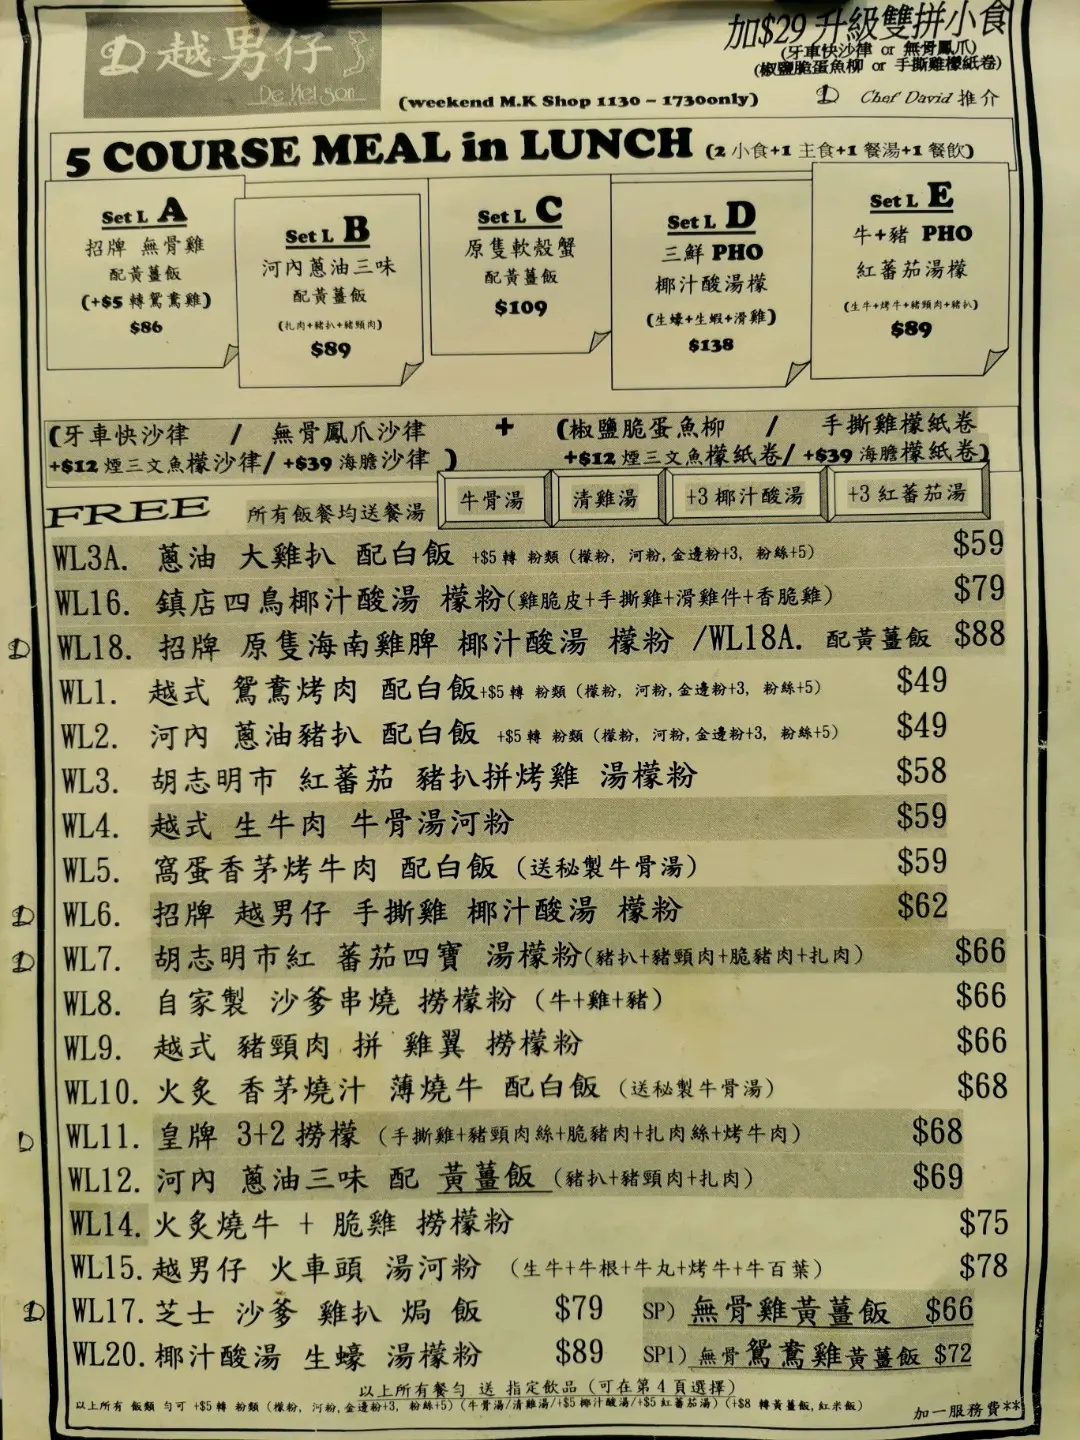 越男仔
De Nei son
加$29 升級雙拼小食
(牙車快沙律 or 無骨鳳爪)
(椒鹽脆蛋魚柳 or 手撕雞檬紙卷)
(weekend M.K Shop 1130 – 1730only)
Chef David 推介
5 COURSE MEAL in LUNCH (2 小食+1 主食+1 餐湯+1 餐飲)
Set L A
招牌 無骨雞
配黃薑飯
(+$5 轉鴛鴦雞)
$86
Set L B
河內蔥油三味
配黃薑飯
(扎肉+豬扒+豬頸肉)
$89
Set L C
原隻軟殼蟹
配黃薑飯
$109
Set L D
三鮮 PHO
椰汁酸湯檬
(生蠔+生蝦+滑雞)
$138
Set L E
牛+豬 PHO
紅蕃茄湯檬
(生牛+烤牛+豬頸肉+豬扒)
$89
(牙車快沙律 / 無骨鳳爪沙律 + (椒鹽脆蛋魚柳 / 手撕雞檬紙卷
+$12 煙三文魚檬沙律/ +$39 海膽沙律 ) +$12 煙三文魚檬紙卷/ +$39 海膽檬紙卷)
FREE 所有飯餐均送餐湯 牛骨湯 清雞湯 +3 椰汁酸湯 +3 紅蕃茄湯
WL3A. 蔥油 大雞扒 配白飯 +$5 轉 粉類 (檬粉, 河粉,金邊粉+3, 粉絲+5) $59
WL16. 鎮店四鳥椰汁酸湯 檬粉(雞脆皮+手撕雞+滑雞件+香脆雞) $79
WL18. 招牌 原隻海南雞髀 椰汁酸湯 檬粉 /WL18A. 配黃薑飯 $88
WL1. 越式 鴛鴦烤肉 配白飯+$5 轉 粉類 (檬粉, 河粉,金邊粉+3, 粉絲+5) $49
WL2. 河內 蔥油豬扒 配白飯 +$5 轉 粉類 (檬粉, 河粉,金邊粉+3, 粉絲+5) $49
WL3. 胡志明市 紅蕃茄 豬扒拼烤雞 湯檬粉 $58
WL4. 越式 生牛肉 牛骨湯河粉 $59
WL5. 窩蛋香茅烤牛肉 配白飯 (送秘製牛骨湯) $59
WL6. 招牌 越男仔 手撕雞 椰汁酸湯 檬粉 $62
WL7. 胡志明市紅 蕃茄四寶 湯檬粉(豬扒+豬頸肉+脆豬肉+扎肉) $66
WL8. 自家製 沙爹串燒 撈檬粉 (牛+雞+豬) $66
WL9. 越式 豬頸肉 拼 雞翼 撈檬粉 $66
WL10. 火炙 香茅燒汁 薄燒牛 配白飯 (送秘製牛骨湯) $68
WL11. 皇牌 3+2 撈檬 (手撕雞+豬頸肉絲+脆豬肉+扎肉絲+烤牛肉) $68
WL12. 河內 蔥油三味 配 黃薑飯 (豬扒+豬頸肉+扎肉) $69
WL14. 火炙燒牛 + 脆雞 撈檬粉 $75
WL15. 越男仔 火車頭 湯河粉 (生牛+牛根+牛丸+烤牛+牛百葉) $78
WL17. 芝士 沙爹 雞扒 焗 飯 $79 SP) 無骨雞黃薑飯 $66
WL20. 椰汁酸湯 生蠔 湯檬粉 $89 SP1) 無骨 鴛鴦雞黃薑飯 $72
以上所有餐勻 送 指定飲品 (可在第 4 頁選擇)
以上所有 飯類 勻可 +$5 轉 粉類 (檬粉, 河粉,金邊粉+3, 粉絲+5) (牛骨湯/清雞湯/+$5 椰汁酸湯/+$5 紅蕃茄湯) (+$8 轉黃薑飯,紅米飯)
加一服務費**